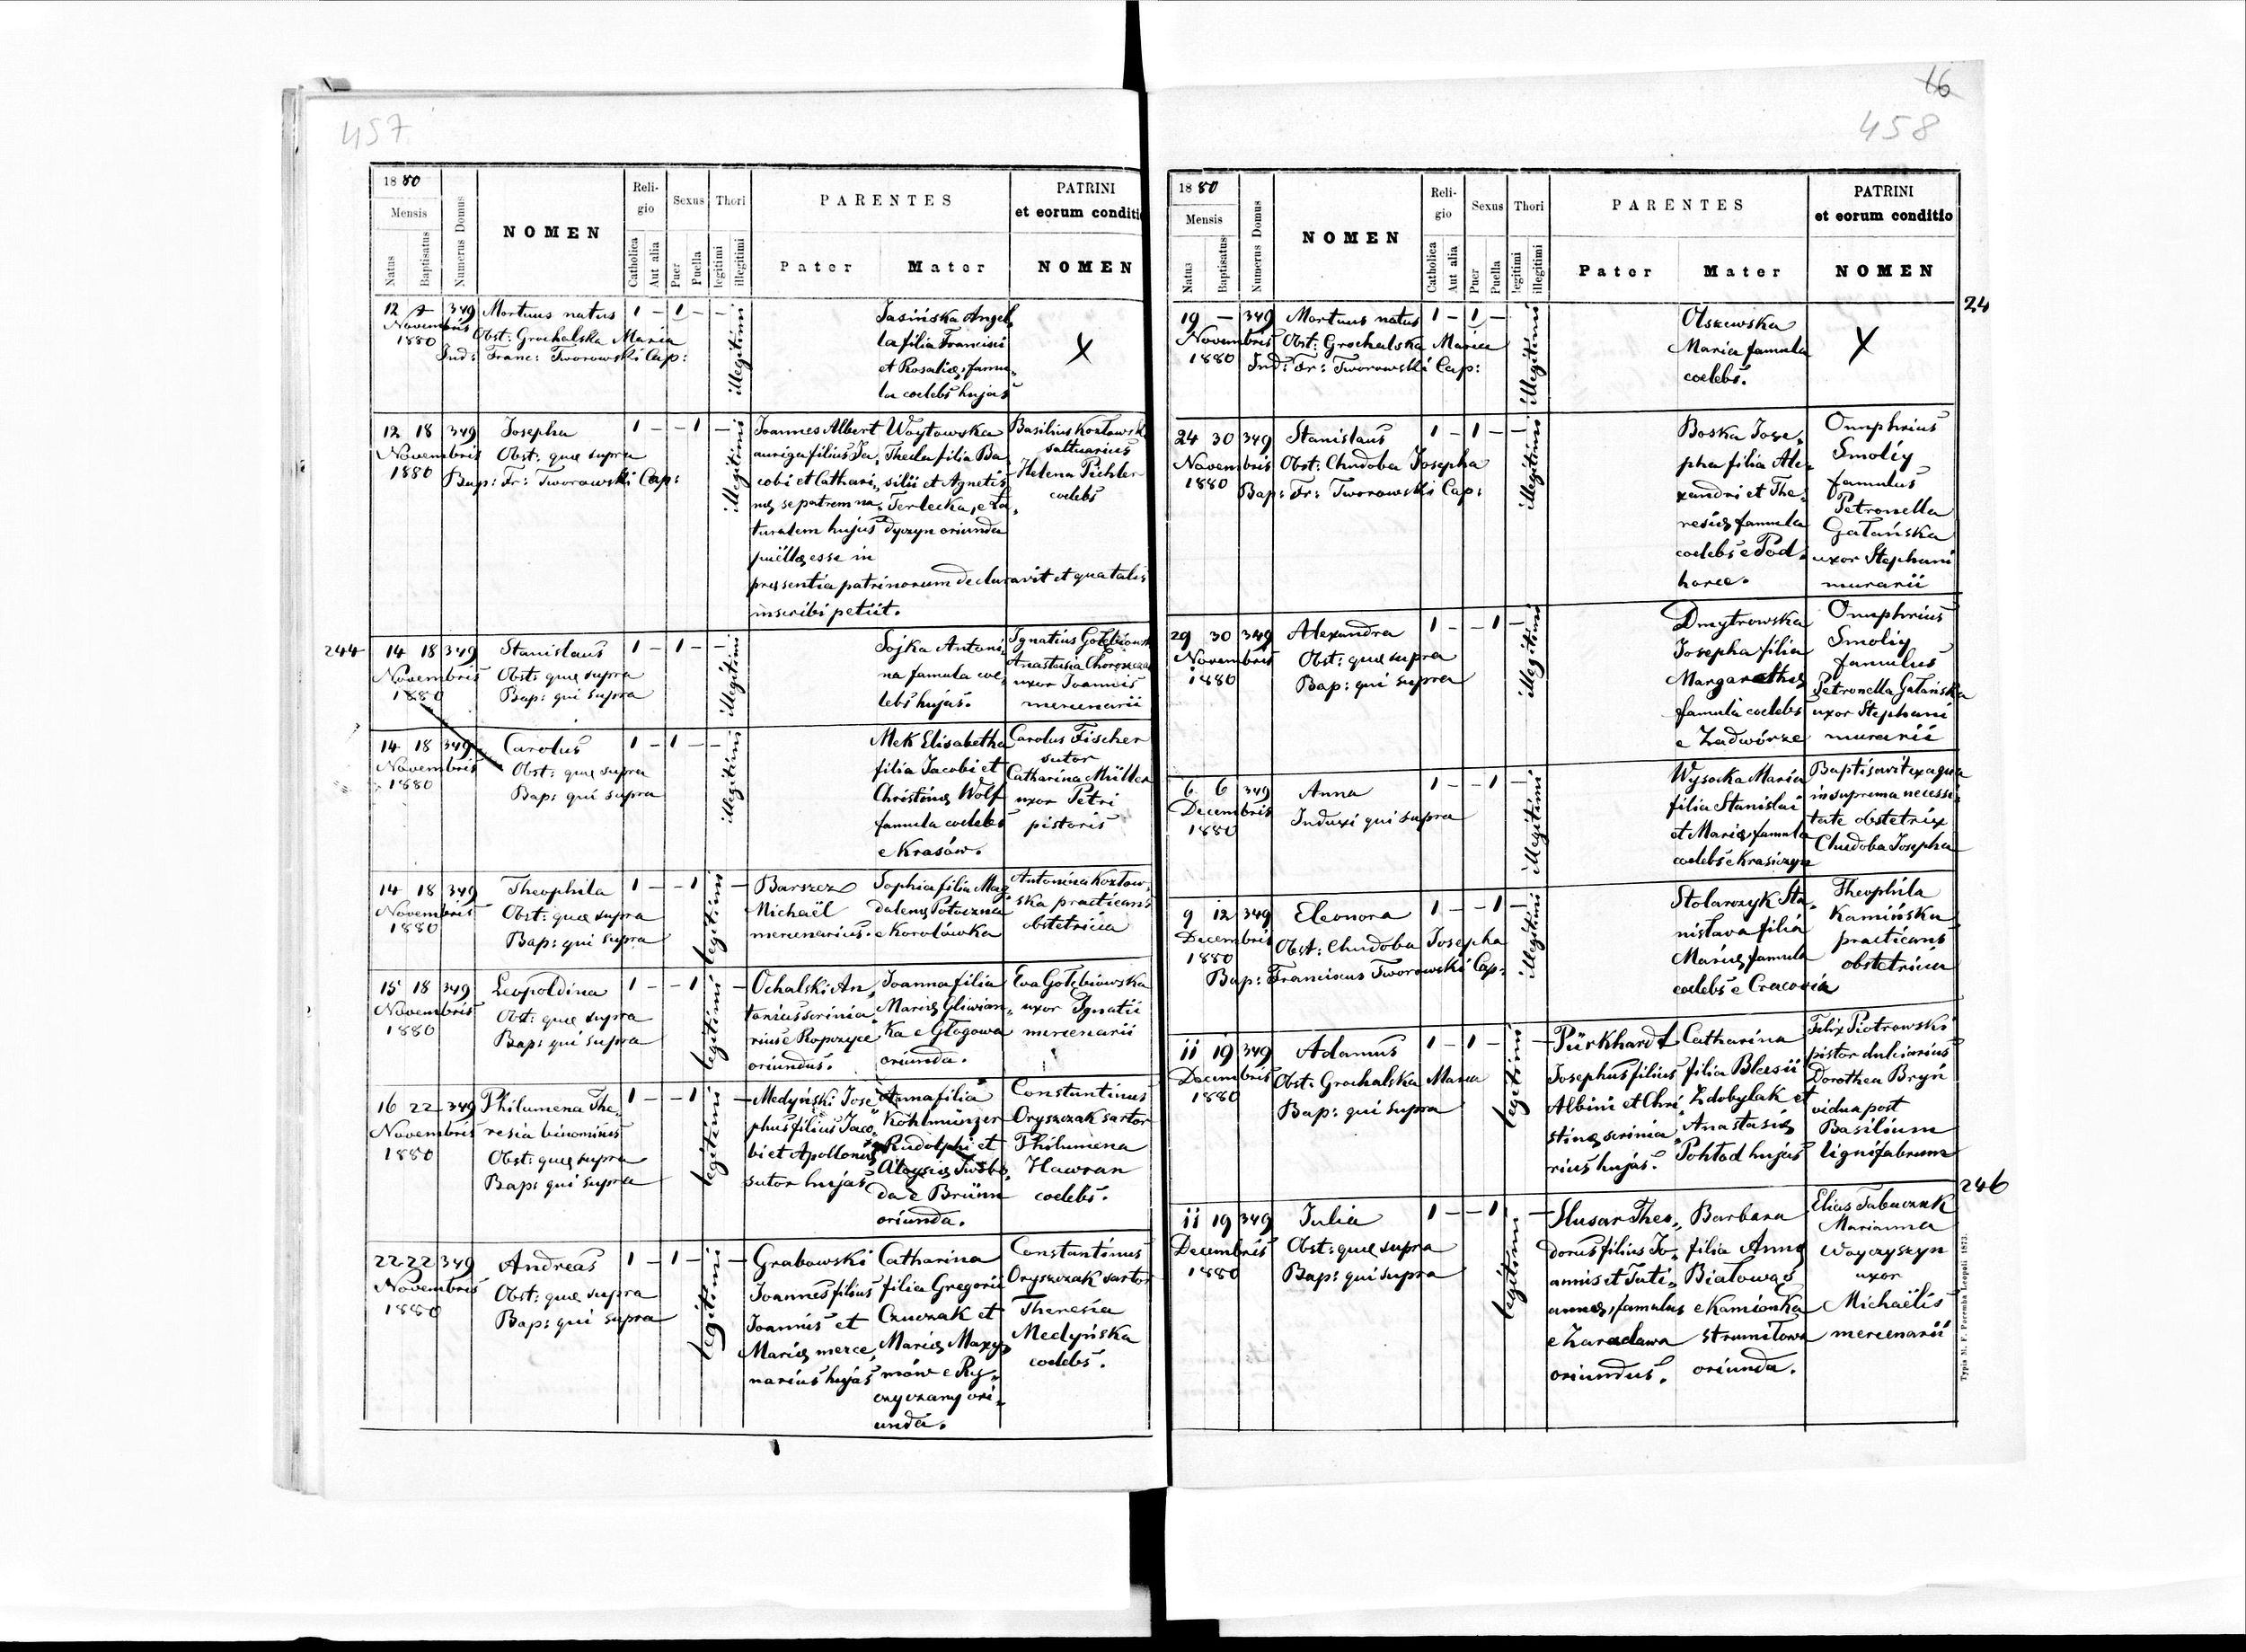 457
1880
Mensis
Natus
Baptisatus
Numerus Domus
NOMEN
Reli-
gio
Catholica
Aut alia
Sexus
Puer
Puella
Thori
legitimi
illegitimi
PARENTES
Pater
Mater
PATRINI
et eorum conditi
NOMEN
12 349 Mortuus natus 1 - 1 - -
Novembris Obst: Grochalska Maria
1880 Ind: Franc: Tworowski Cap:
illegitimi
Jasińska Angel
la filia Francisci
et Rosaliæ, famu„
la coelebs hujas
X
12 18 349 Josepha 1 - - 1 -
Novembris Obst: quæ supra
1880 Bap: Fr: Tworowski Cap:
illegitimi
Joannes Albert
auriga filius Ja„
cobi et Cathari„
næ se patrem na„
turalem hujus
puëllæ esse in
præsentia patrinorum declaravit et qua talis
inscribi petiit.
Woytowska
Thecla filia Ba
silii et Agnetis
Terlecka, e Ła„
dyczyn oriunda
Basilius Kozłowsk
saltuarius
Helena Pichler
coelebs
244
14 18 349 Stanislaus 1 - 1 - -
Novembris Obst: quæ supra
1880 Bap: qui supra
illegitimi
Sojka Antoni„
na famula coe„
lebs hujas.
Ignatius Gołębiowsk
Anastasia
uxor Joannis
mercenarii
14 18 349 Carolus 1 - 1 - -
Novembris Obst: quæ supra
1880 Bap: qui supra
illegitimi
Mek Elisabetha
filia Jacobi et
Christinæ Wolf
famula coelebs
e Krasów.
Carolus Fischer
sutor
Catharina Müller
uxor Petri
pistoris
14 18 349 Theophila 1 - - 1 -
Novembris Obst: quæ supra
1880 Bap: qui supra
legitimi
Barszcz
Michaël
mercenarius.
Sophia filia Mag„
dalenæ Potoczna
e Korolówka
Antonina Kozłow„
ska practicans
obstetricia
15 18 349 Leopoldina 1 - - 1 -
Novembris Obst: quæ supra
1880 Bap: qui supra
legitimi
Ochalski An„
tonius scrinia„
rius e Ropczyce
oriundus.
Joanna filia
Mariæ Gliwian„
ka e Głogowa
oriunda.
Eva Gołębiowska
uxor Ignatii
mercenarii
16 22 349 Philumena The„ 1 - - 1 -
Novembris resia binominis
1880 Obst: quæ supra
Bap: qui supra
legitimi
Medyński Jose„
phus filius Jaco„
bi et Apolloniæ
sutor hujas
Anna filia
Kohlmünzer
Rudolphi et
Aloysiæ
da e Brünn
oriunda.
Constantinus
Oryszczak sartor
Philumena
Hawran
coelebs.
22 22 349 Andreas 1 - 1 - -
Novembris Obst: quæ supra
1880 Bap: qui supra
legitimi
Grabowski
Joannes filius
Joannis et
Mariæ merce„
narius hujas
Catharina
filia Gregorii
Czuczak et
Mariæ Maxy„
mów e Ry„
czyczany ori„
unda.
Constantinus
Oryszczak sartor
Theresia
Medyńska
coelebs.
16
458
1880
Mensis
Natus
Baptisatus
Numerus Domus
NOMEN
Reli-
gio
Catholica
Aut alia
Sexus
Puer
Puella
Thori
legitimi
illegitimi
PARENTES
Pater
Mater
PATRINI
et eorum conditio
NOMEN
24
19 - 349 Mortuus natus 1 - 1 -
Novembris Obst: Grochalska Maria
1880 Ind: Fr: Tworowski Cap:
illegitimi
Olszewska
Maria famula
coelebs.
X
24 30 349 Stanislaus 1 - 1 - -
Novembris Obst: Chudoba Josepha
1880 Bap: Fr: Tworowski Cap:
illegitimi
Boska Jose„
pha filia Ale„
xandri et The„
resiæ famula
coelebs e Pod„
horce.
Onuphrius
Smoliy
famulus
Petronella
Gałańska
uxor Stephani
murarii
29 30 349 Alexandra 1 - - 1 -
Novembris Obst: quæ supra
1880 Bap: qui supra
illegitimi
Dmytrowska
Josepha filia
Margarethæ
famula coelebs
e Zadwórze
Onuphrius
Smoliy
famulus
Petronella Gałańska
uxor Stephani
murarii
6 6 349 Anna 1 - - 1 -
Decembris Induxi qui supra
1880
illegitimi
Wysocka Maria
filia Stanislai
et Mariæ, famula
coelebs e Krasiczyn
Baptisavit ex aqua
in suprema necessi„
tate obstetrix
Chudoba Josepha
9 12 349 Eleonora 1 - - 1 -
Decembris Obst: Chudoba Josepha
1880 Bap: Franciscus Tworowski Cap:
illegitimi
Stolarczyk Sta„
nisłava filia
Mariæ, famula
coelebs e Cracovia
Theophila
Kamińska
practicans
obstetricia
11 19 349 Adamus 1 - 1 - -
Decembris Obst: Grochalska Maria
1880 Bap: qui supra
legitimi
Pürkhardt
Josephus filius
Albini et Chri„
stinæ scrinia„
rius hujas.
Catharina
filia Blasii
Zdobylak et
Anastasiæ
Pohład hujas
Felix Piotrowski
pistor dulciarius
Dorothea Bryń
vidua post
Basilium
lignifabrum
246
11 19 349 Julia 1 - - 1 -
Decembris Obst: quæ supra
1880 Bap: qui supra
legitimi
Slusar Theo„
dorus filius Jo„
annis et Tati„
annæ, famulus
e Zaradawa
oriundus.
Barbara
filia Annæ
Białowąs
e Kamionka
strumiłowa
oriunda.
Elias Tabaczak
Marianna
Woyczyszyn
uxor
Michaëlis
mercenarii
Typis M. F. Poremba Leopoli 1873.